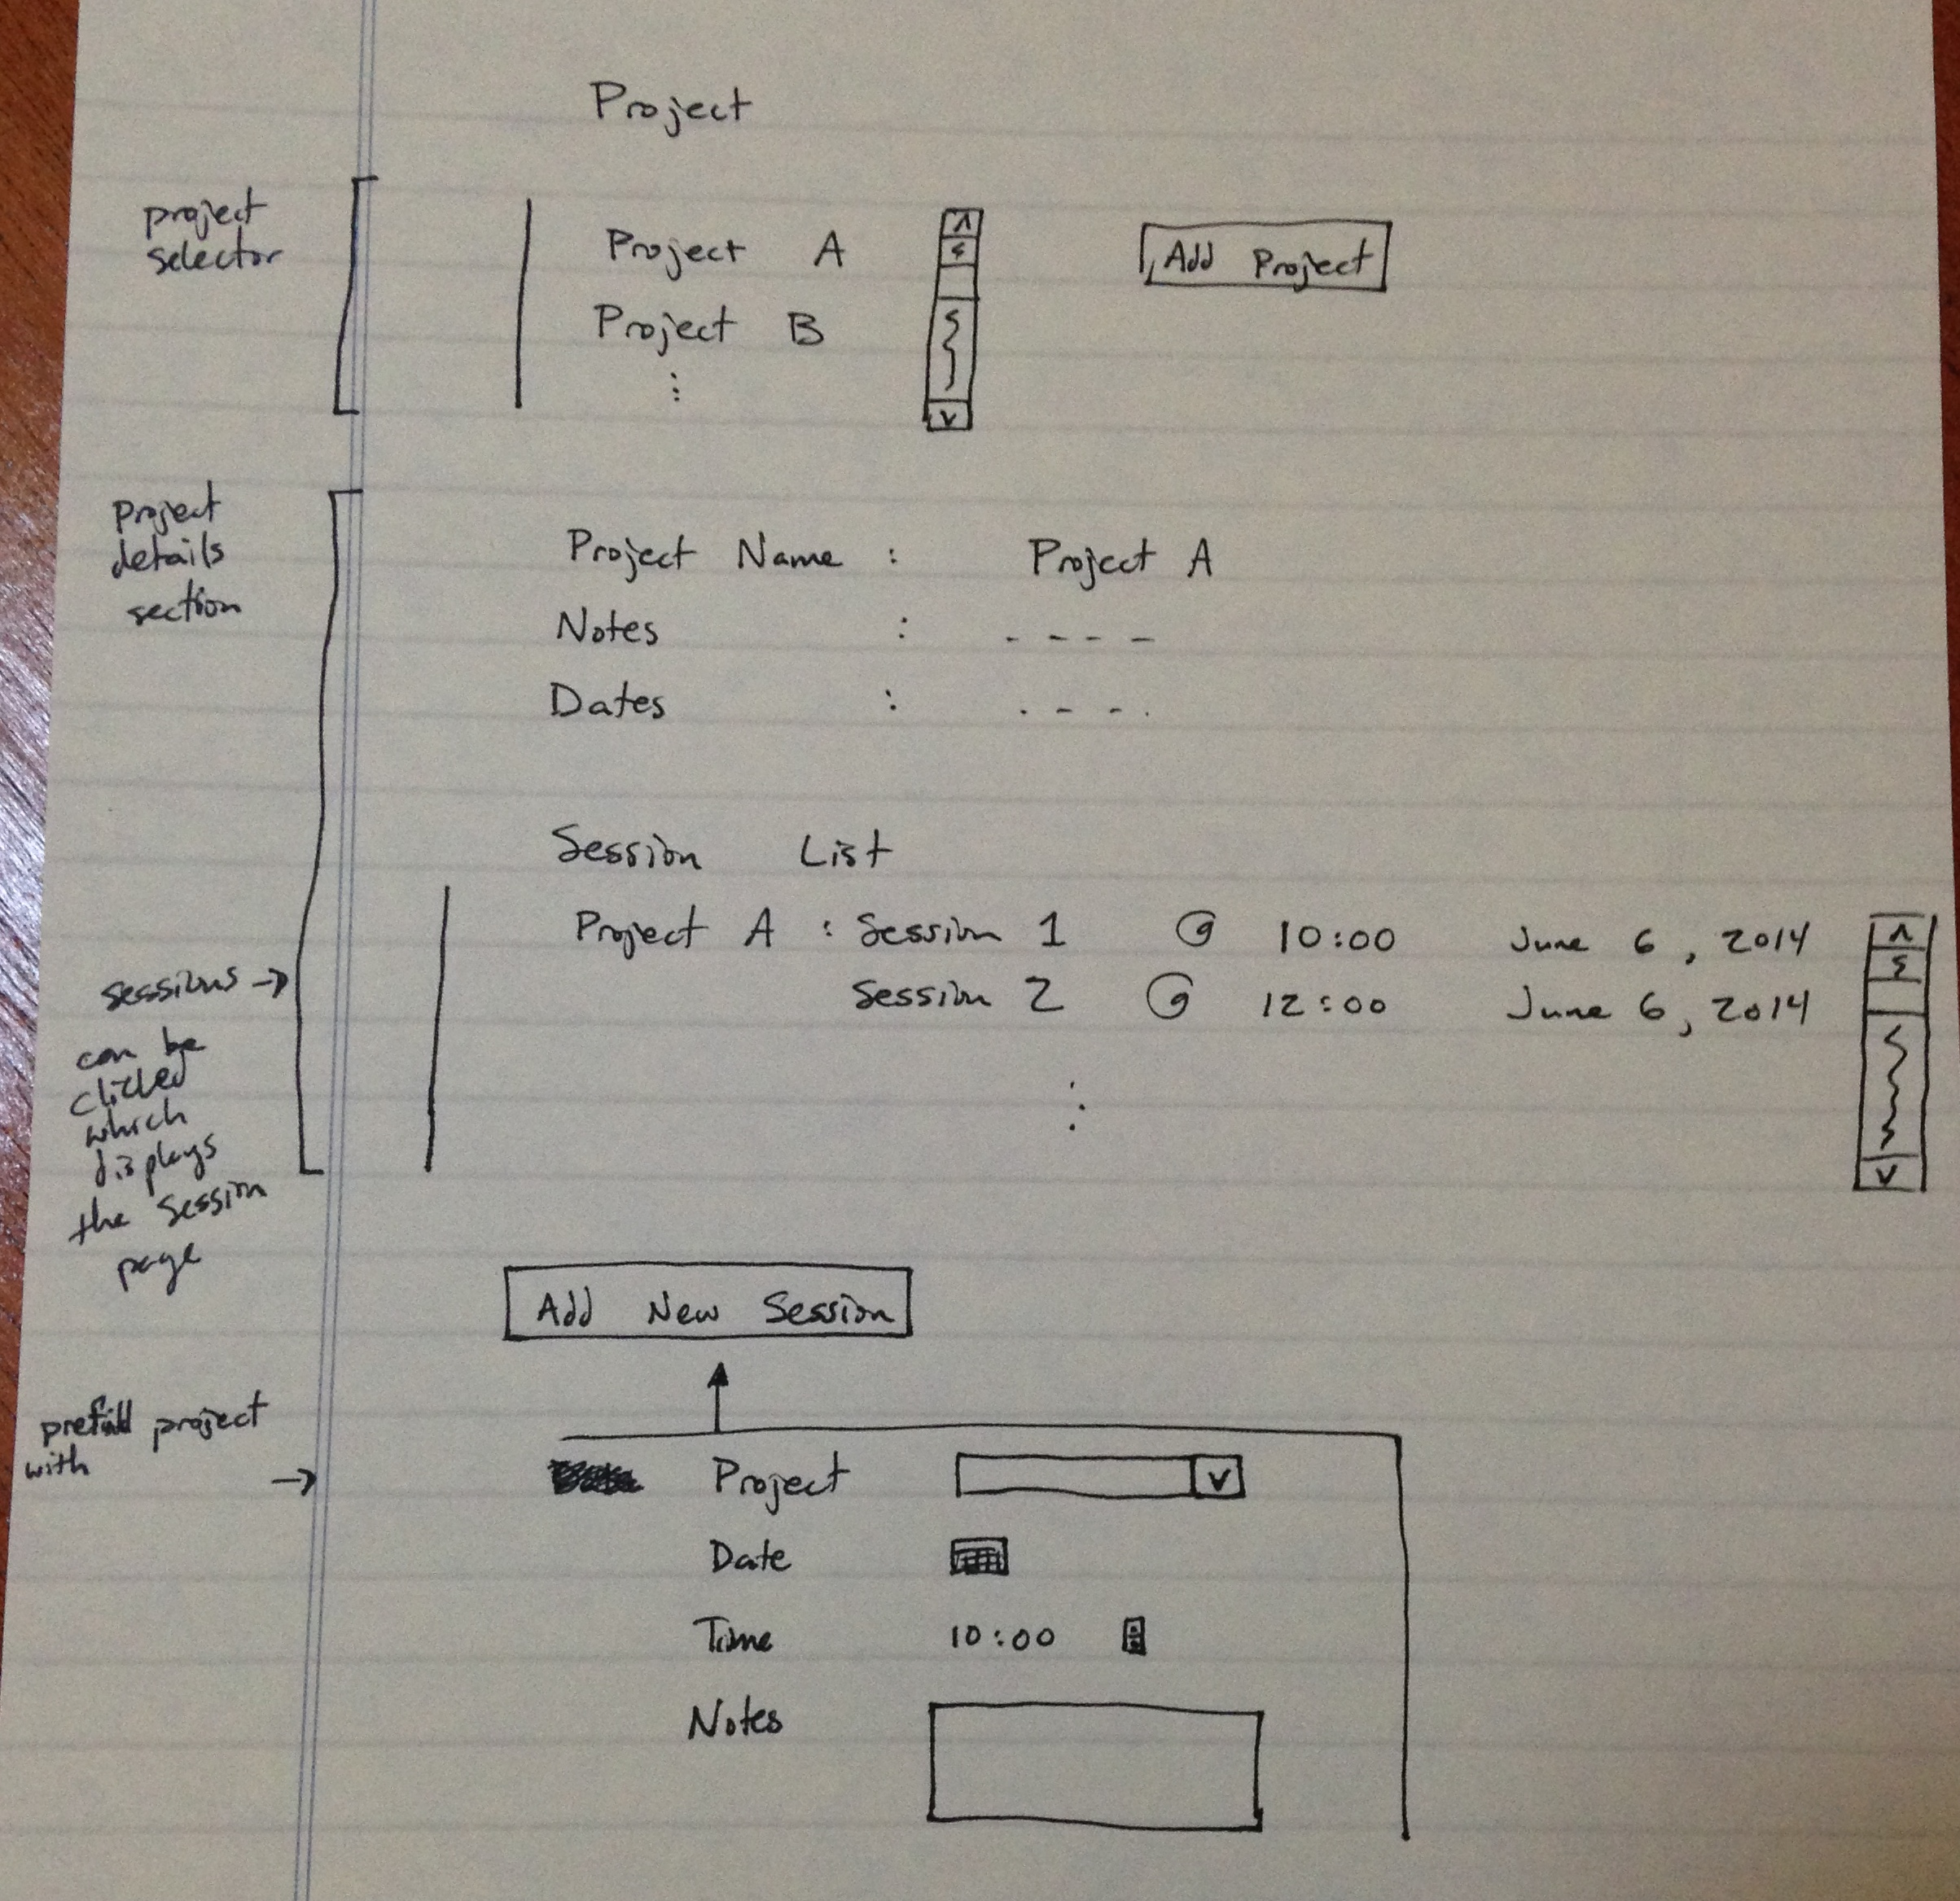 Project
project
selector
Project A
Add Project
Project B
⋮
Project
details
section
Project Name : Project A
Notes : - - - -
Dates : - - - -
Session List
Project A : Session 1 @ 10:00 June 6, 2014
Session 2 @ 12:00 June 6, 2014
⋮
sessions →
can be
clicked
which
displays
the session
page
Add New Session
prefill project
with →
Project
Date
Time 10:00
Notes